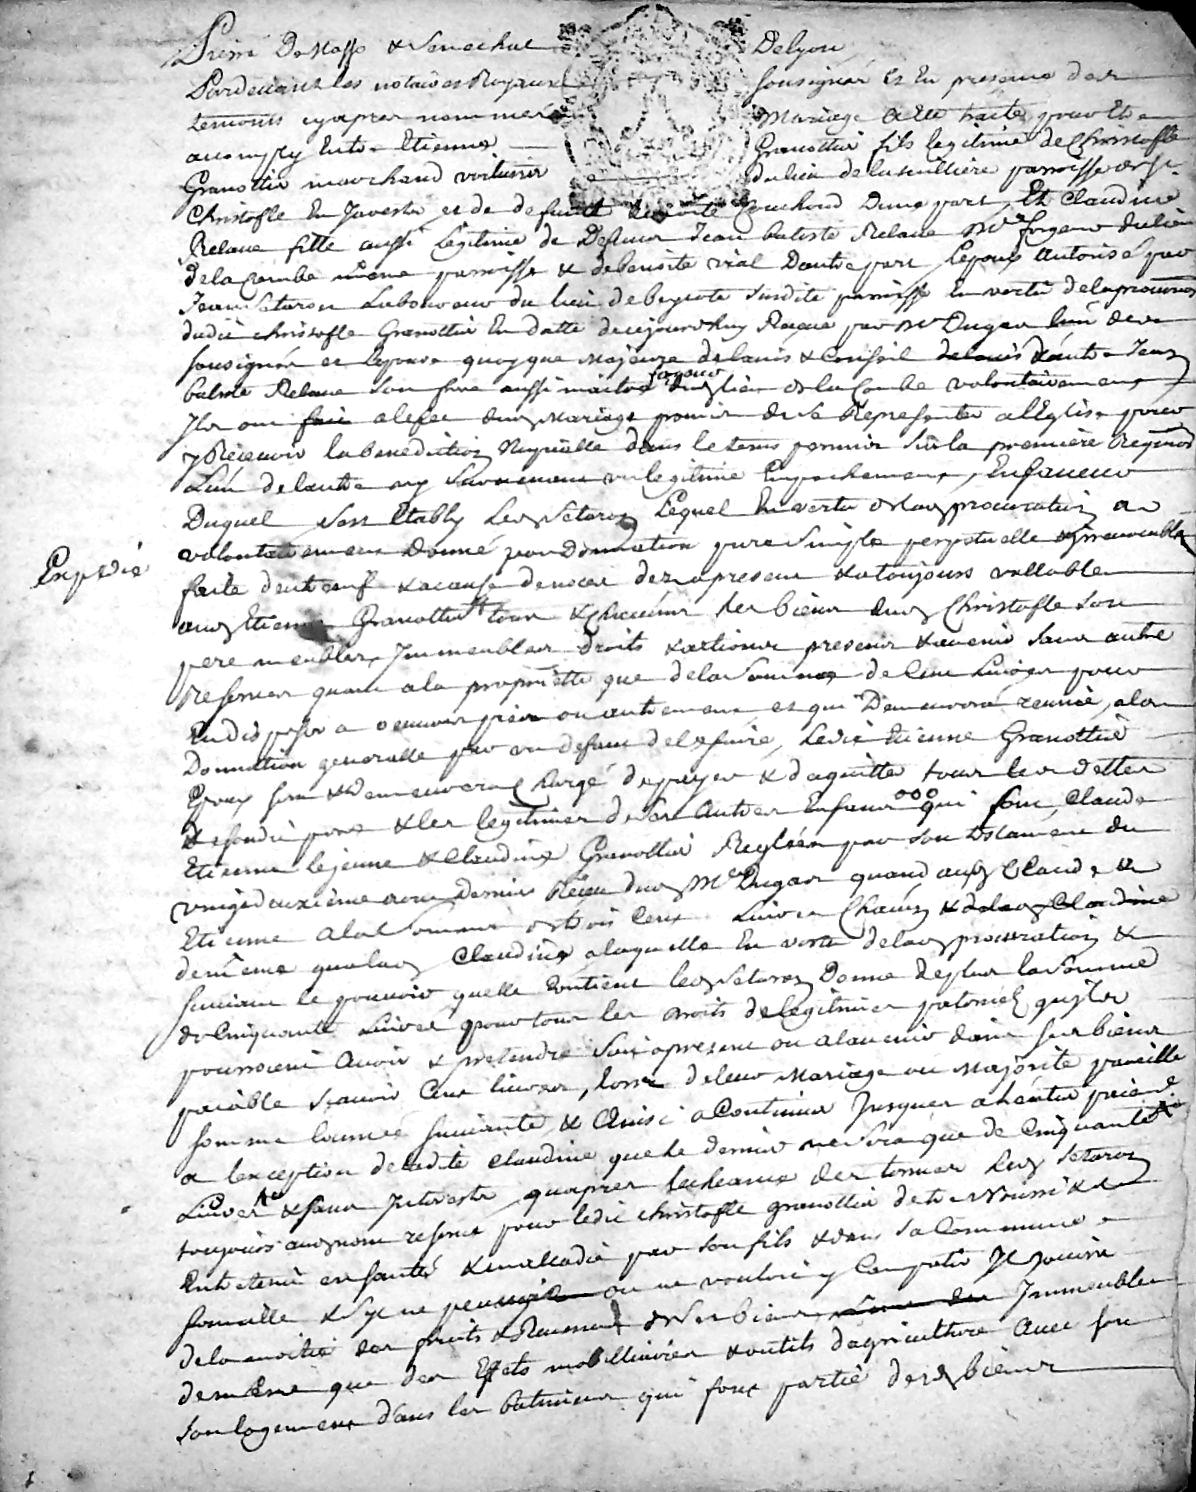 Delyon
Pardevant les notaires Royaux soussignés Et En presence des
temoins cyapres nommés Mariage a Eté traité pour Etre
acomply Entre Etienne Granottier fils legitime de Christofle
Granottier marchand voiturier du lieu de paroisse de St
Christofle En Javestz et de defunte Couchoud Dune part, Et Claudine
Relave fille aussi Legitime de Defunt Jean batiste Relave Me forgeur du lieu
de la Combe même paroisse & de benoite vial Dautre part, Lepoux Autorisé par
Jean Setaron Laboureur du lieu de susdite paroisse En vertu de la procuration
dudit christofle Granottier En datte de cejourdhuy Reçue par Me Dugas Lun des
soussignés et Lepouse quoyque Majeure de lavis & Conseil dautre Jean
batiste Relave son frere aussi maitre forgeur dudt lieu de la Combe volontairement
Ils ont fait a leffet dudt Mariage promis de se Representer a lEglise pour
y Recevoir la benediction Nuptialle dans le tems permis sur la premiere Requisition
Lun de lautre ny survenant legitime Empechement, En faveur
Duquel sest Etably led Setaron Lequel En vertu de lad procuration a
volontairement Donné par Donnation pure simple perpetuelle & irrevocable
Expedié
faite dentrevif & a cause de noces dez apresent & a toujours vallable
aud Etienne Granottier tous & Chacuns les biens dud Christofle son
pere meubles, Immeubles droits & actions presents & avenir sans autre
Reserve quant a la proprieté que de la somme de Cent Livres pour
En disposer a oeuvres pies ou autrement et qui Demeurera reunie, a la
Donnation generalle par un defaut de le faire, Ledit Etienne Granottier
Epoux sera & demeurera Chargé de payer & daquitter tous les dettes
de sondit pere & les legitimes de ses Autres Enfans ooo qui sont Claude
Etienne lejeune & Claudine Granottier Reglées par son testament du
vingt deuxieme Dernier Reçu dud Me Dugas quand aud Claude &
Etienne a la Somme de trois Cent Livres Chacun & de lad Claudine
de même qualad Claudine a laquelle En vertu de lad procuration &
suivant le pouvoir quelle Contient led Setaron Donne de plus la somme
de Cinquante Livres pour tous les droits de legitime paternel quils
pourroient Avoir & pretendre soit apresent ou alavenir dans ses biens
payable scavoir Cent livres, lors de leur Mariage ou Majorité pareille
somme lannée suivante, & Ainsi a Continuer Jusques a Entier paiement
a lexception de ladite Claudine que le dernier ne sera que de Cinquante
Livres & sans Interests quapres les termes led Setaron
toujours aud nom reserve pour ledit christofle granottier detre Nourri &
Entretenu en santé & maladie par son fils & dans sa Commune
famille & sy ne ou ne vouloit y Compatir Il Jouira
de la moitié des fruits & Revenus de ses biens Immeubles
de même que des Effets mobilliaires & outils dagriculture Avec son
son logement dans les batiments qui font partie desd biens